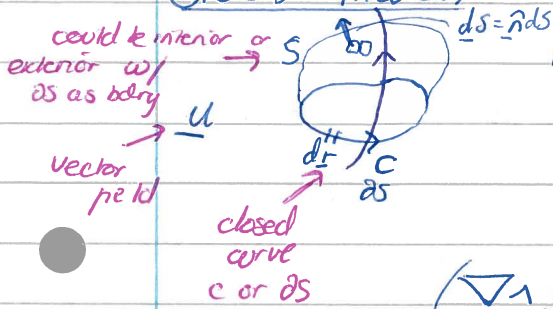 could be interior or
exterior w/
∂S as bdry
S
dS = n̂ dS
u
vector
field
dr
C
∂S
closed
curve
C or ∂S
(∇∧